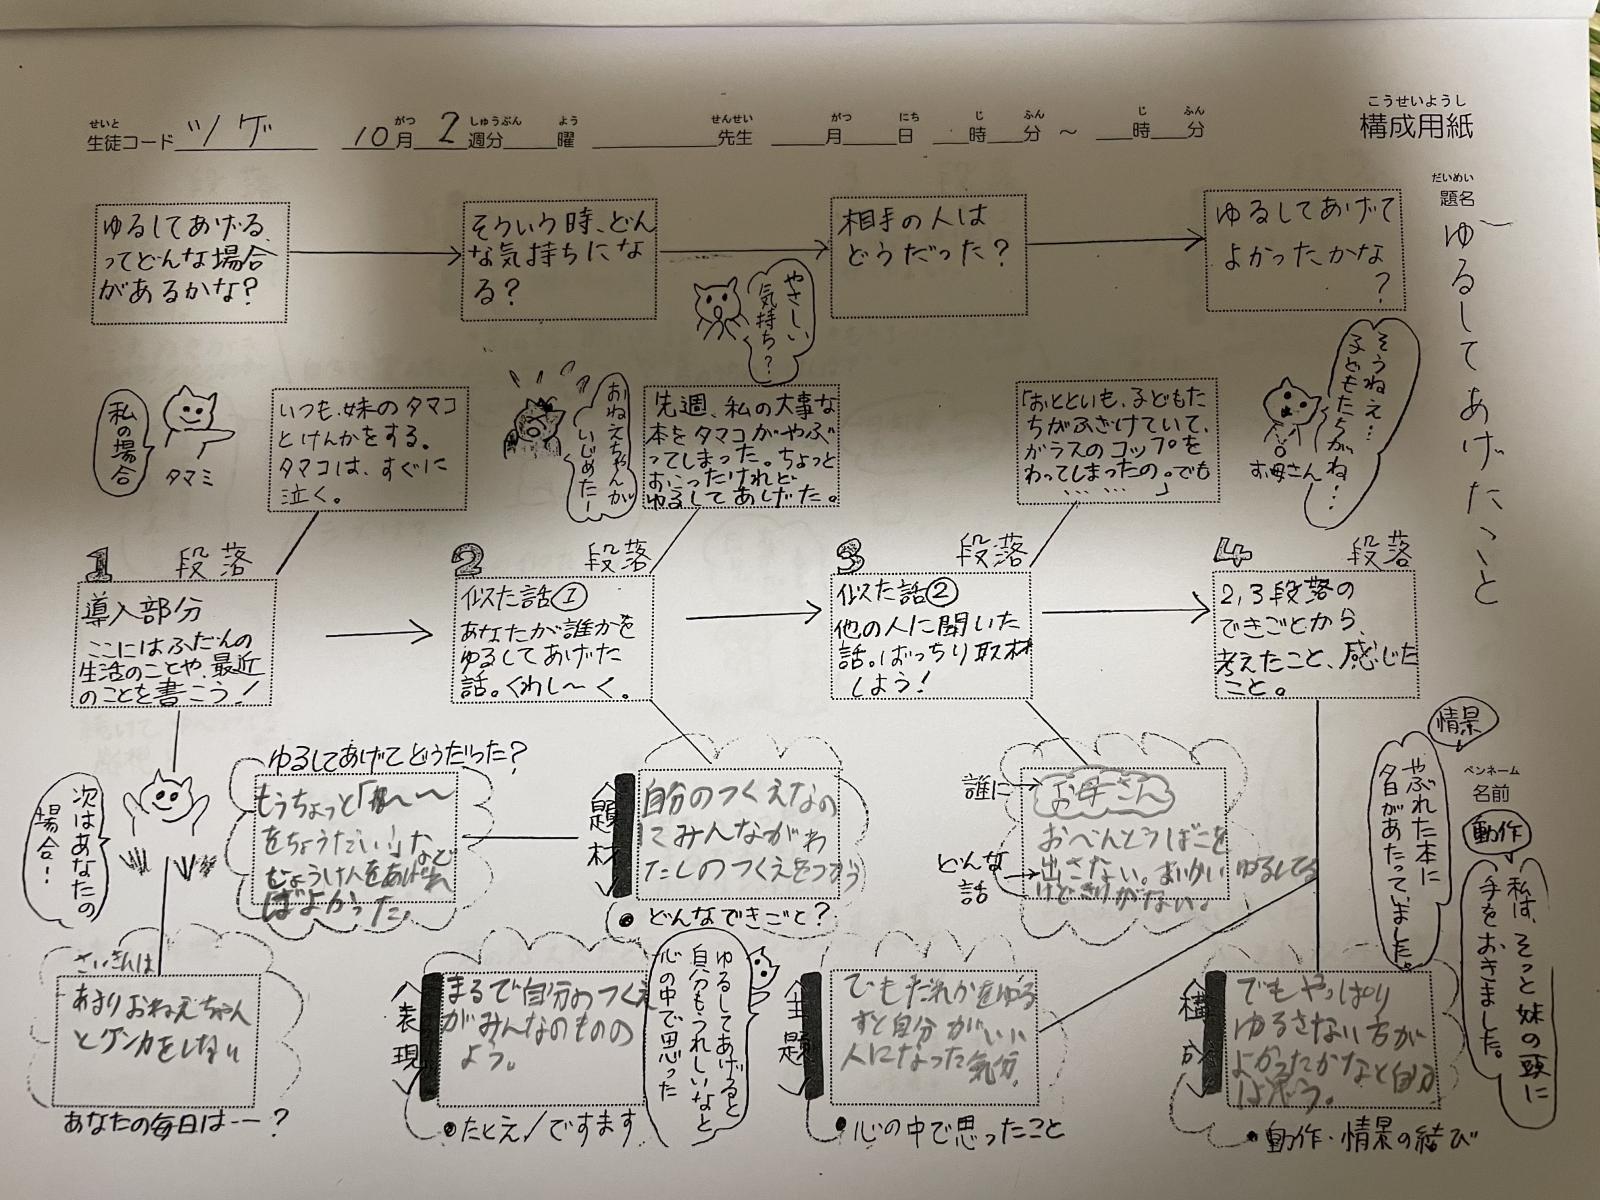 こうせいようし
構成用紙
せいと
生徒コード ツゲ
がつ しゅうぶん よう
10月 2 週分 曜
せんせい
先生
がつ にち じ ふん じ ふん
月 日 時 分 ～ 時 分
だいめい
題名
ゆるしてあげたこと
ゆるしてあげる
ってどんな場合
があるかな?
そういう時、どん
な気持ちにな
る?
相手の人は
どうだった?
ゆるしてあげて
よかったかな
?
やさしい
気持ち?
私の場合
タマミ
いつも、妹のタマコ
とけんかをする。
タマコは、すぐに
泣く。
おねえちゃんが
いじめたー
先週、私の大事な
本をタマコがやぶ
ってしまった。ちょっと
おこったけれど
ゆるしてあげた。
「おとといも、子どもた
ちがふざけていて、
ガラスのコップを
わってしまったの。でも
… … …」
お母さん
そうねえ…
子どもたちがね…
1 段落
導入部分
ここにはふだんの
生活のことや、最近
のことを書こう!
2 段落
似た話①
あなたが誰かを
ゆるしてあげた
話。くわし～く。
3 段落
似た話②
他の人に聞いた
話。ばっちり取材
しよう!
4 段落
2,3段落の
できごとから、
考えたこと、感じた
こと。
次はあなたの
場合!
ゆるしてあげてどうだった?
もうちょっと「
をちょうだい」など
じょうけんをあげれ
ばよかった。
〈題材〉
自分のつくえなの
にみんながわ
たしのつくえをつかう
●どんなできごと?
誰に→
お母さん
どんな
話→
おべんとうばこを
出さない。
けどきりがない。
情景
やぶれた本に
夕日があたっていました。
ペンネーム
名前
動作
私は、そっと妹の頭に
手をおきました。
さいきんは
あまりおねえちゃん
とケンカをしない
あなたの毎日は…?
〈表現〉
まるで自分のつくえ
がみんなのものの
よう。
●たとえ/ですます
ゆるしてあげると
自分もうれしいなと
心の中で思った
〈主題〉
でもだれかをゆる
すと自分がいい
人になった気分。
●心の中で思ったこと
〈構成〉
でもやっぱり
ゆるさない方が
よかったかなと自分
は思う。
●動作・情景の結び